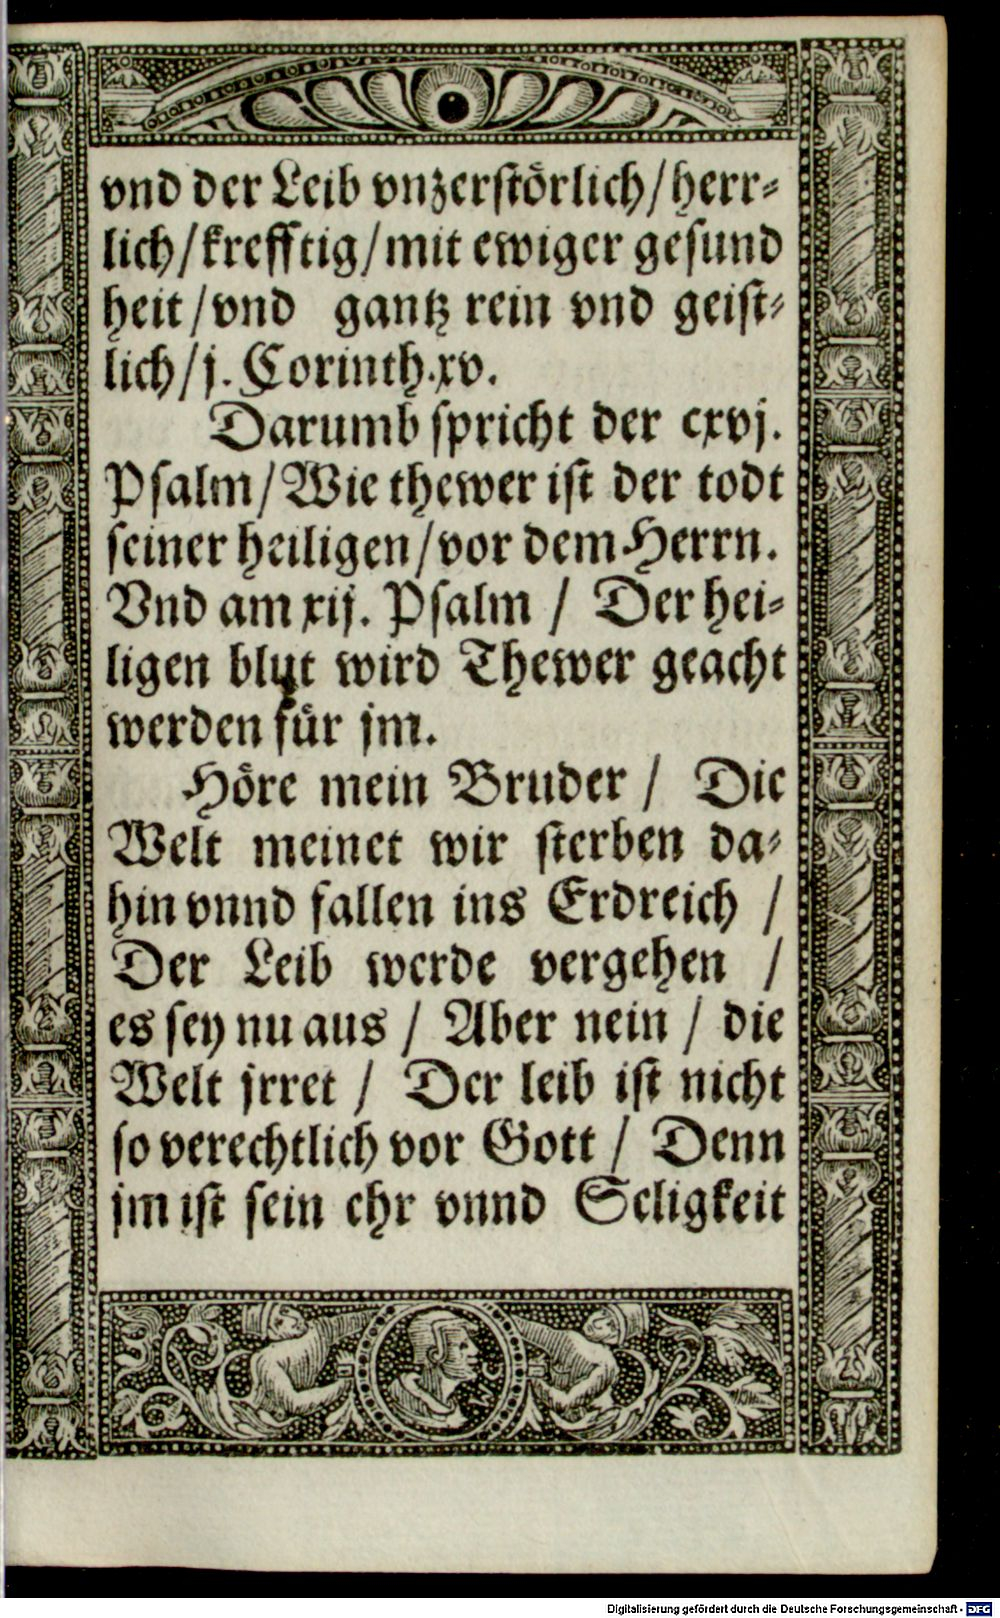 vnd der Leib vnzerstörlich/herr-
lich/krefftig/mit ewiger gesund
heit/vnd gantz rein vnd geist-
lich/j. Corinth.xv.
Darumb spricht der cxvj.
Psalm/Wie thewer ist der todt
seiner heiligen/vor dem Herrn.
Vnd am xij. Psalm / Der hei-
ligen blut wird Thewer geacht
werden für jm.
Höre mein Bruder / Die
Welt meinet wir sterben da-
hin vnnd fallen ins Erdreich /
Der Leib werde vergehen /
es sey nu aus / Aber nein / die
Welt jrret / Der leib ist nicht
so verechtlich vor Gott / Denn
jm ist sein ehr vnnd Seligkeit
Digitalisierung gefördert durch die Deutsche Forschungsgemeinschaft - DFG